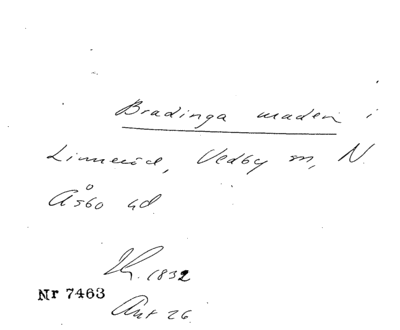 Bradinga maden i
Linneröd, Vedby sn, N.
Åsbo hd.
Kr. 1832
Nr 7463
Akt 26